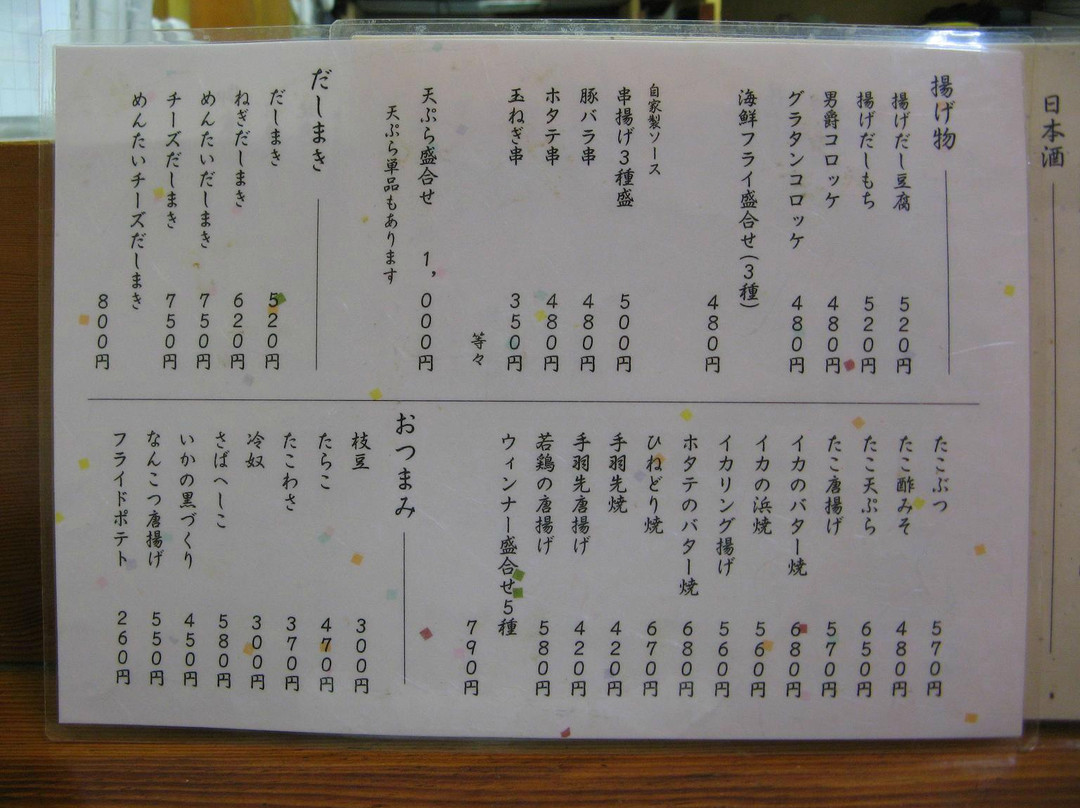 日本酒
揚げ物
揚げだし豆腐 520円
揚げだしもち 520円
男爵コロッケ 480円
グラタンコロッケ 480円
海鮮フライ盛合せ(3種)
480円
自家製ソース
串揚げ3種盛 500円
豚バラ串 480円
ホタテ串 480円
玉ねぎ串 350円
等々
天ぷら盛合せ 1,000円
天ぷら単品もあります
だしまき
だしまき 520円
ねぎだしまき 620円
めんたいだしまき 750円
チーズだしまき 750円
めんたいチーズだしまき
800円
たこぶつ 570円
たこ酢みそ 480円
たこ天ぷら 650円
たこ唐揚げ 570円
イカのバター焼 680円
イカの浜焼 560円
イカリング揚げ 560円
ホタテのバター焼 680円
ひねどり焼 670円
手羽先焼 420円
手羽先唐揚げ 420円
若鶏の唐揚げ 580円
ウィンナー盛合せ5種
790円
おつまみ
枝豆 300円
たらこ 470円
たこわさ 370円
冷奴 300円
さばへしこ 580円
いかの黒づくり 450円
なんこつ唐揚げ 550円
フライドポテト 260円